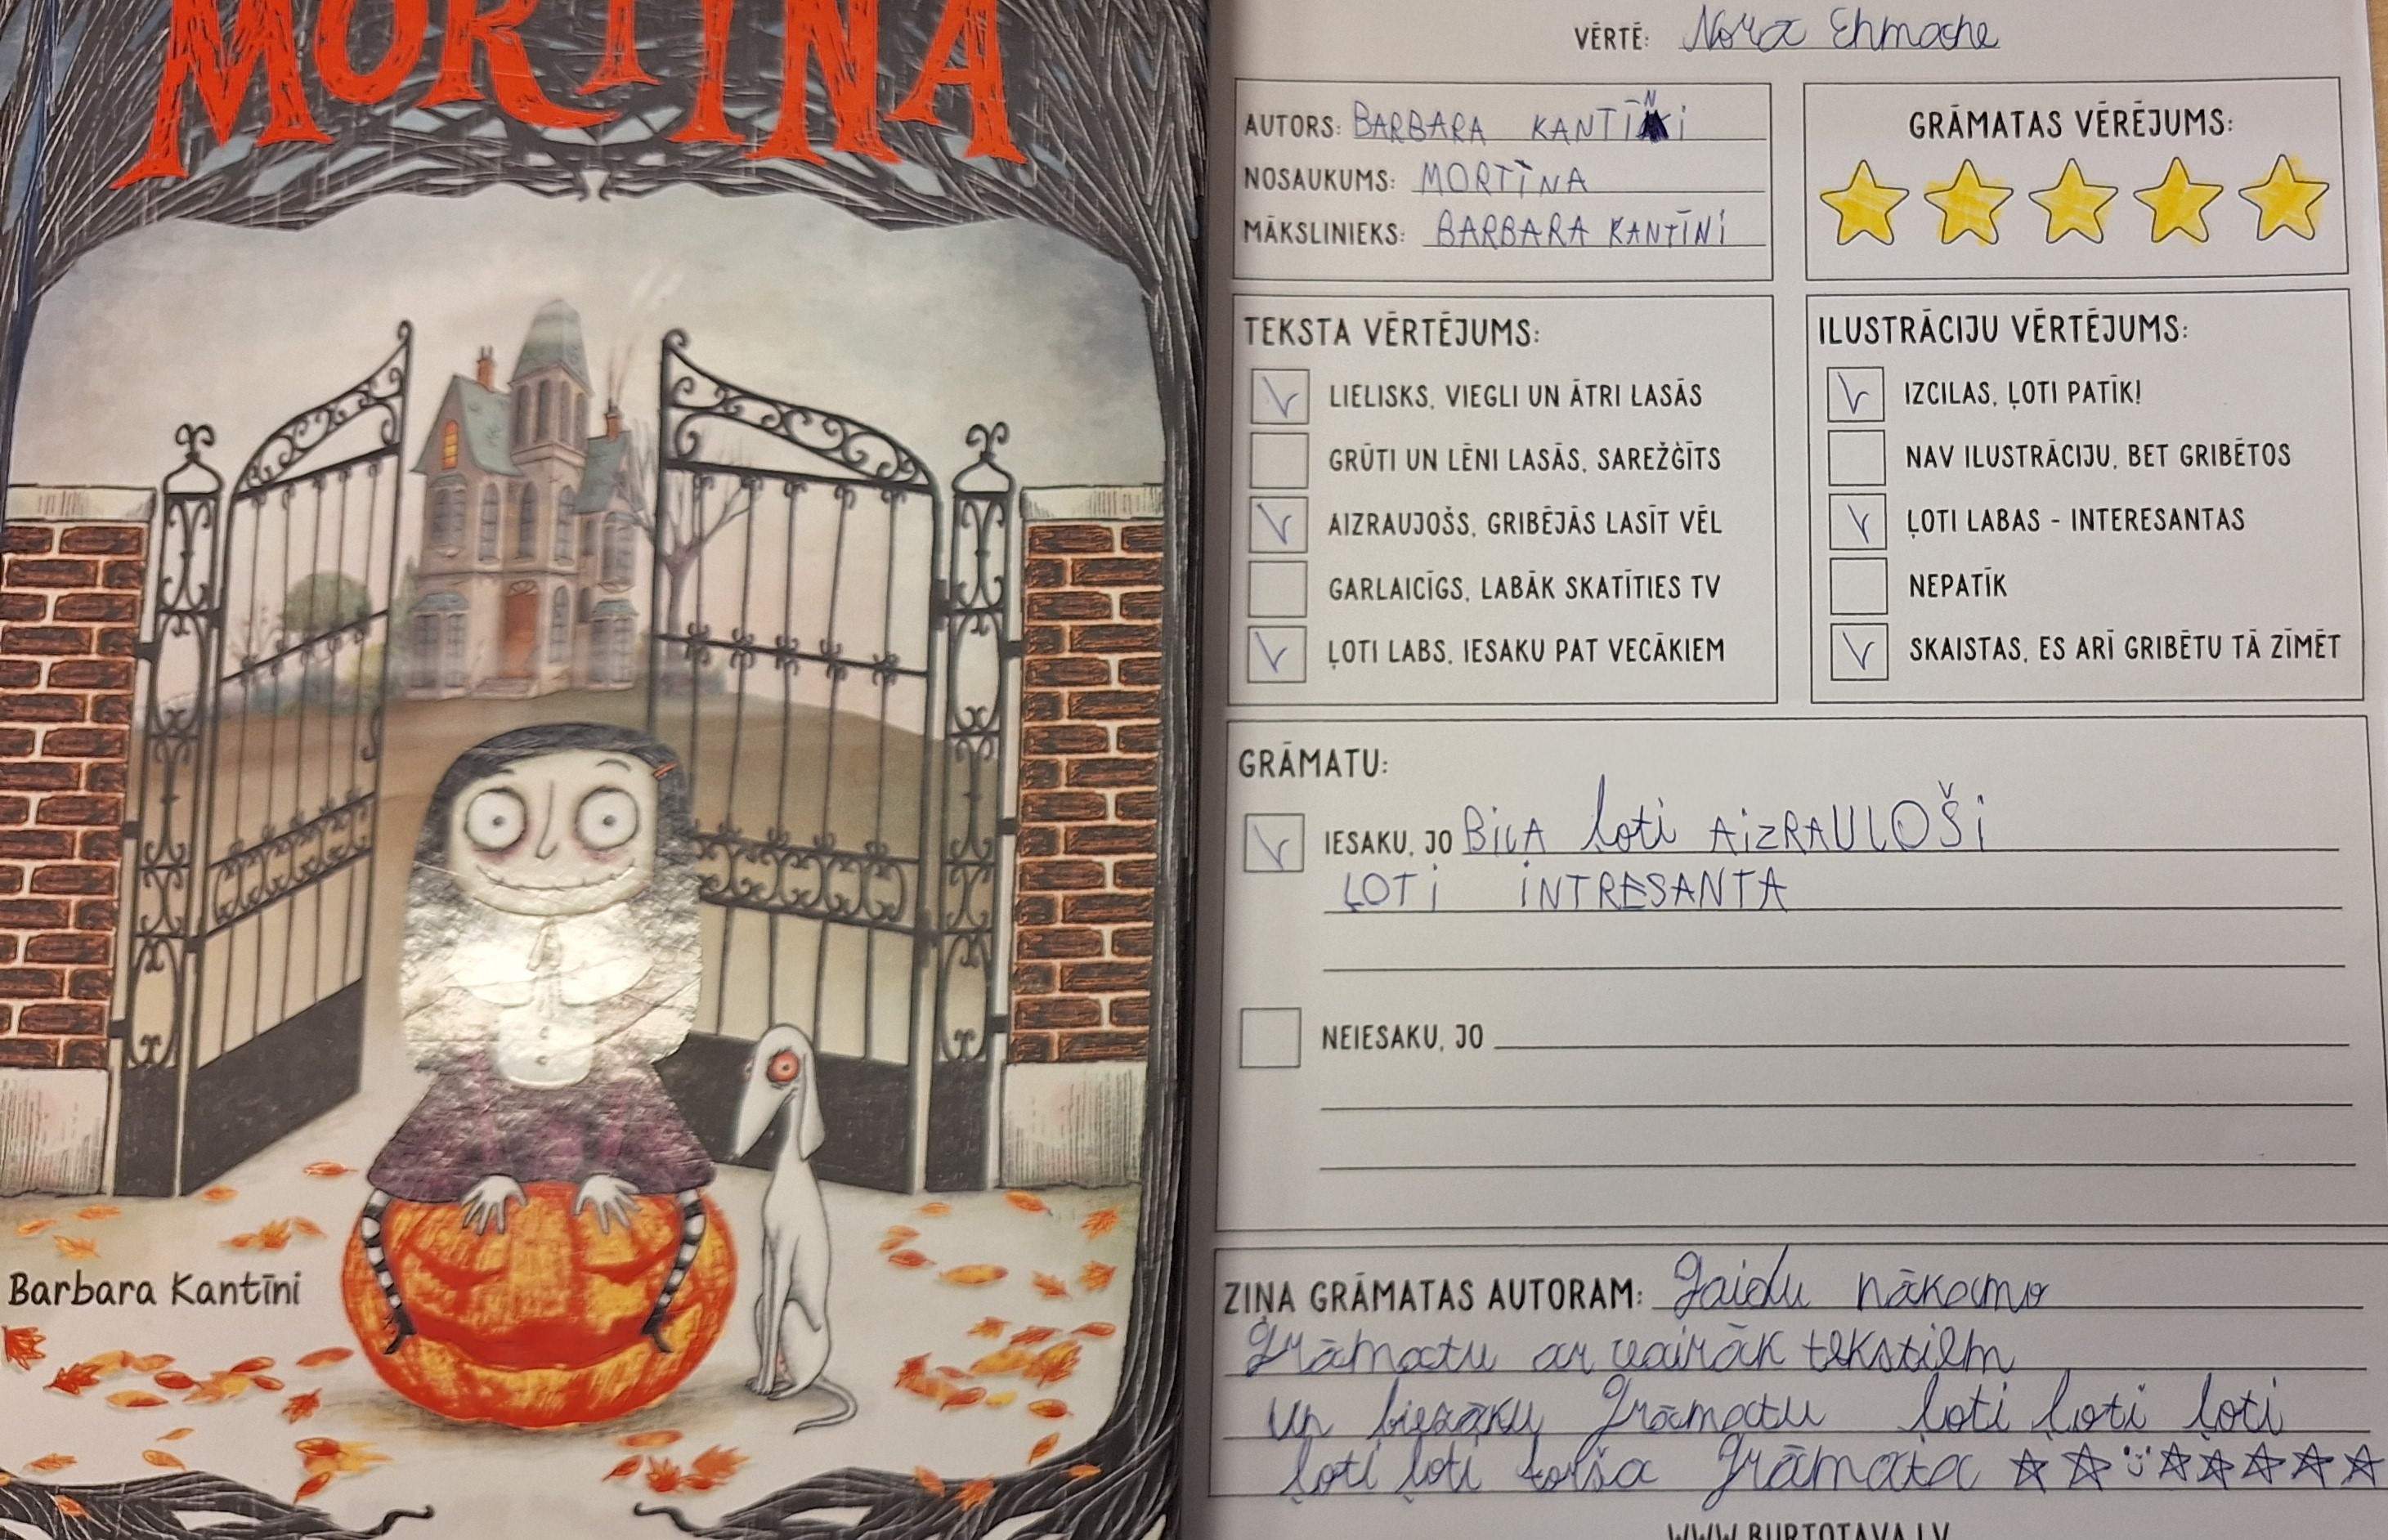 MORTINA
Barbara Kantīni
VĒRTĒ: Nora Ehmane
AUTORS: BARBARA KANTĪNi
NOSAUKUMS: MORTINA
MĀKSLINIEKS: BARBARA KANTĪNi
GRĀMATAS VĒRĒJUMS:
TEKSTA VĒRTĒJUMS:
LIELISKS, VIEGLI UN ĀTRI LASĀS
GRŪTI UN LĒNI LASĀS, SAREŽĢĪTS
AIZRAUJOŠS, GRIBĒJĀS LASĪT VĒL
GARLAICĪGS, LABĀK SKATĪTIES TV
ĻOTI LABS, IESAKU PAT VECĀKIEM
ILUSTRĀCIJU VĒRTĒJUMS:
IZCILAS, ĻOTI PATĪK!
NAV ILUSTRĀCIJU, BET GRIBĒTOS
ĻOTI LABAS - INTERESANTAS
NEPATĪK
SKAISTAS, ES ARĪ GRIBĒTU TĀ ZĪMĒT
GRĀMATU:
IESAKU, JO BiJA ļoti AiZRAUJOŠi
ĻOTi iNTRESANTA
NEIESAKU, JO
ZIŅA GRĀMATAS AUTORAM: Gaidu nākamo
Grāmatu ar vairāk tekstiem
un biezāku Grāmatu ļoti ļoti ļoti
ļoti ļoti forša Grāmata
WWW.BURTOTAVA.LV